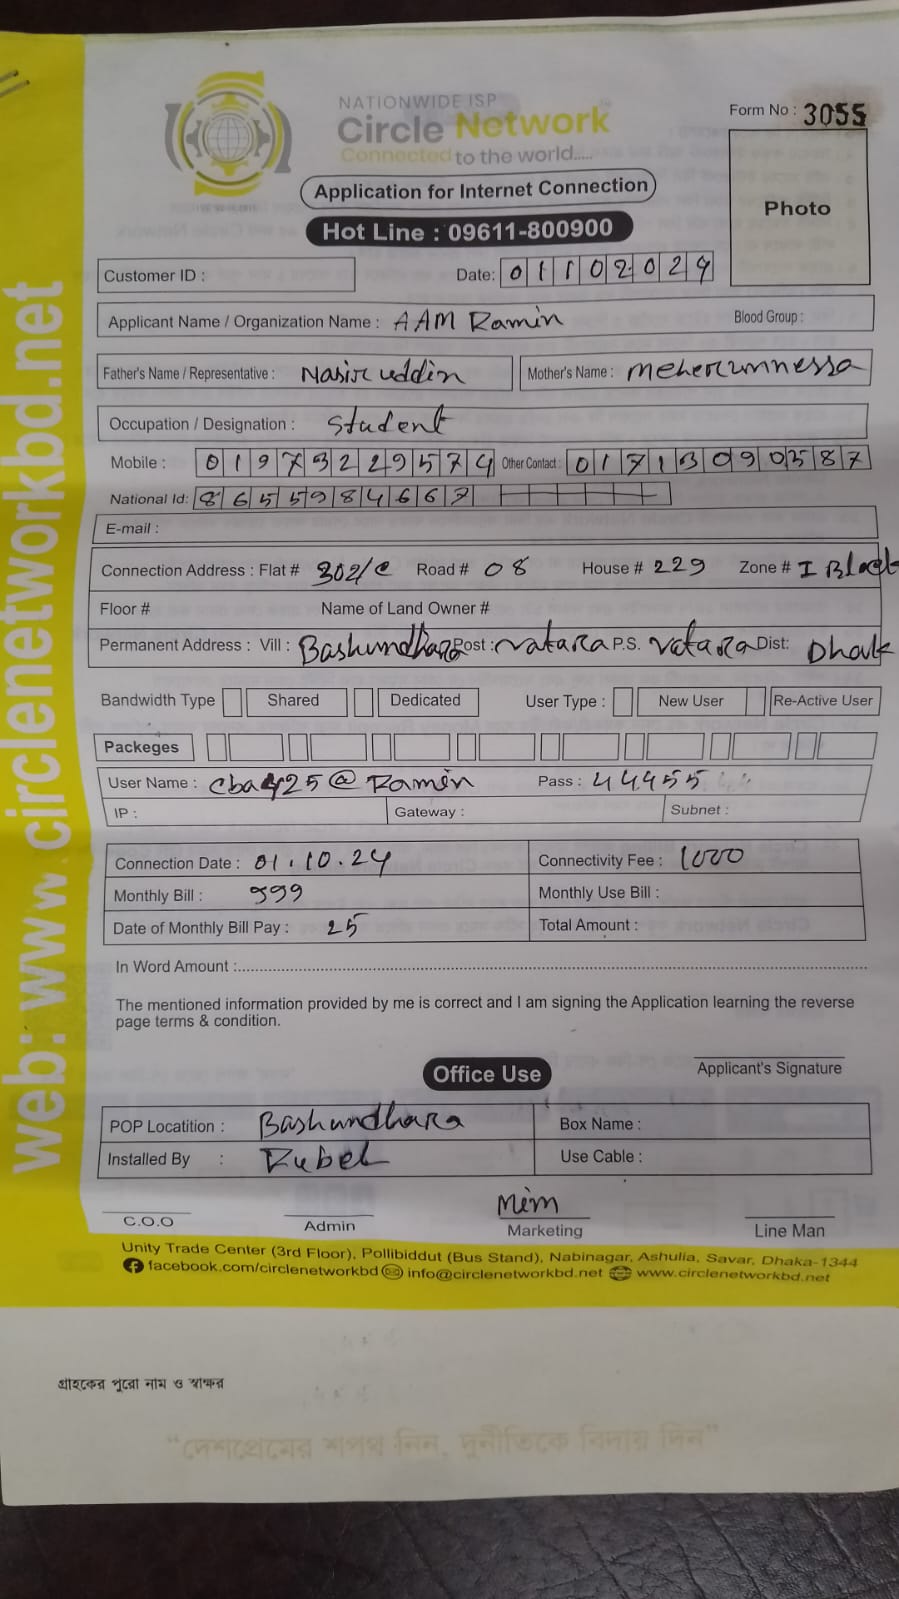 NATIONWIDE ISP
Circle Network
Connected to the world.....
Form No : 3055
Photo
Application for Internet Connection
Hot Line : 09611-800900
Customer ID :
Date: 01102024
Applicant Name / Organization Name : AAM Ramin Blood Group :
Father's Name / Representative : Nasir uddin Mother's Name : Meherunnessa
Occupation / Designation : Student
Mobile : 01973229574 Other Contact : 01713090587
National Id: 8655984667
E-mail :
Connection Address : Flat # 302/C Road # 08 House # 229 Zone # I Block
Floor # Name of Land Owner #
Permanent Address : Vill : Bashundhara Post : Vatara P.S. Vatara Dist: Dhak
Bandwidth Type Shared Dedicated User Type : New User Re-Active User
Packeges
User Name : cba425@Ramin Pass : 44455
IP : Gateway : Subnet :
Connection Date : 01.10.24 Connectivity Fee : 1000
Monthly Bill : 999 Monthly Use Bill :
Date of Monthly Bill Pay : 25 Total Amount :
In Word Amount :
The mentioned information provided by me is correct and I am signing the Application learning the reverse
page terms & condition.
Applicant's Signature
Office Use
POP Locatition : Bashundhara Box Name :
Installed By : Rubel Use Cable :
Mim
C.O.O Admin Marketing Line Man
Unity Trade Center (3rd Floor), Pollibiddut (Bus Stand), Nabinagar, Ashulia, Savar, Dhaka-1344
facebook.com/circlenetworkbd info@circlenetworkbd.net www.circlenetworkbd.net
web: www.circlenetworkbd.net
গ্রাহকের পুরো নাম ও স্বাক্ষর
“দেশপ্রেমের শপথ নিন, দুর্নীতিকে বিদায় দিন”